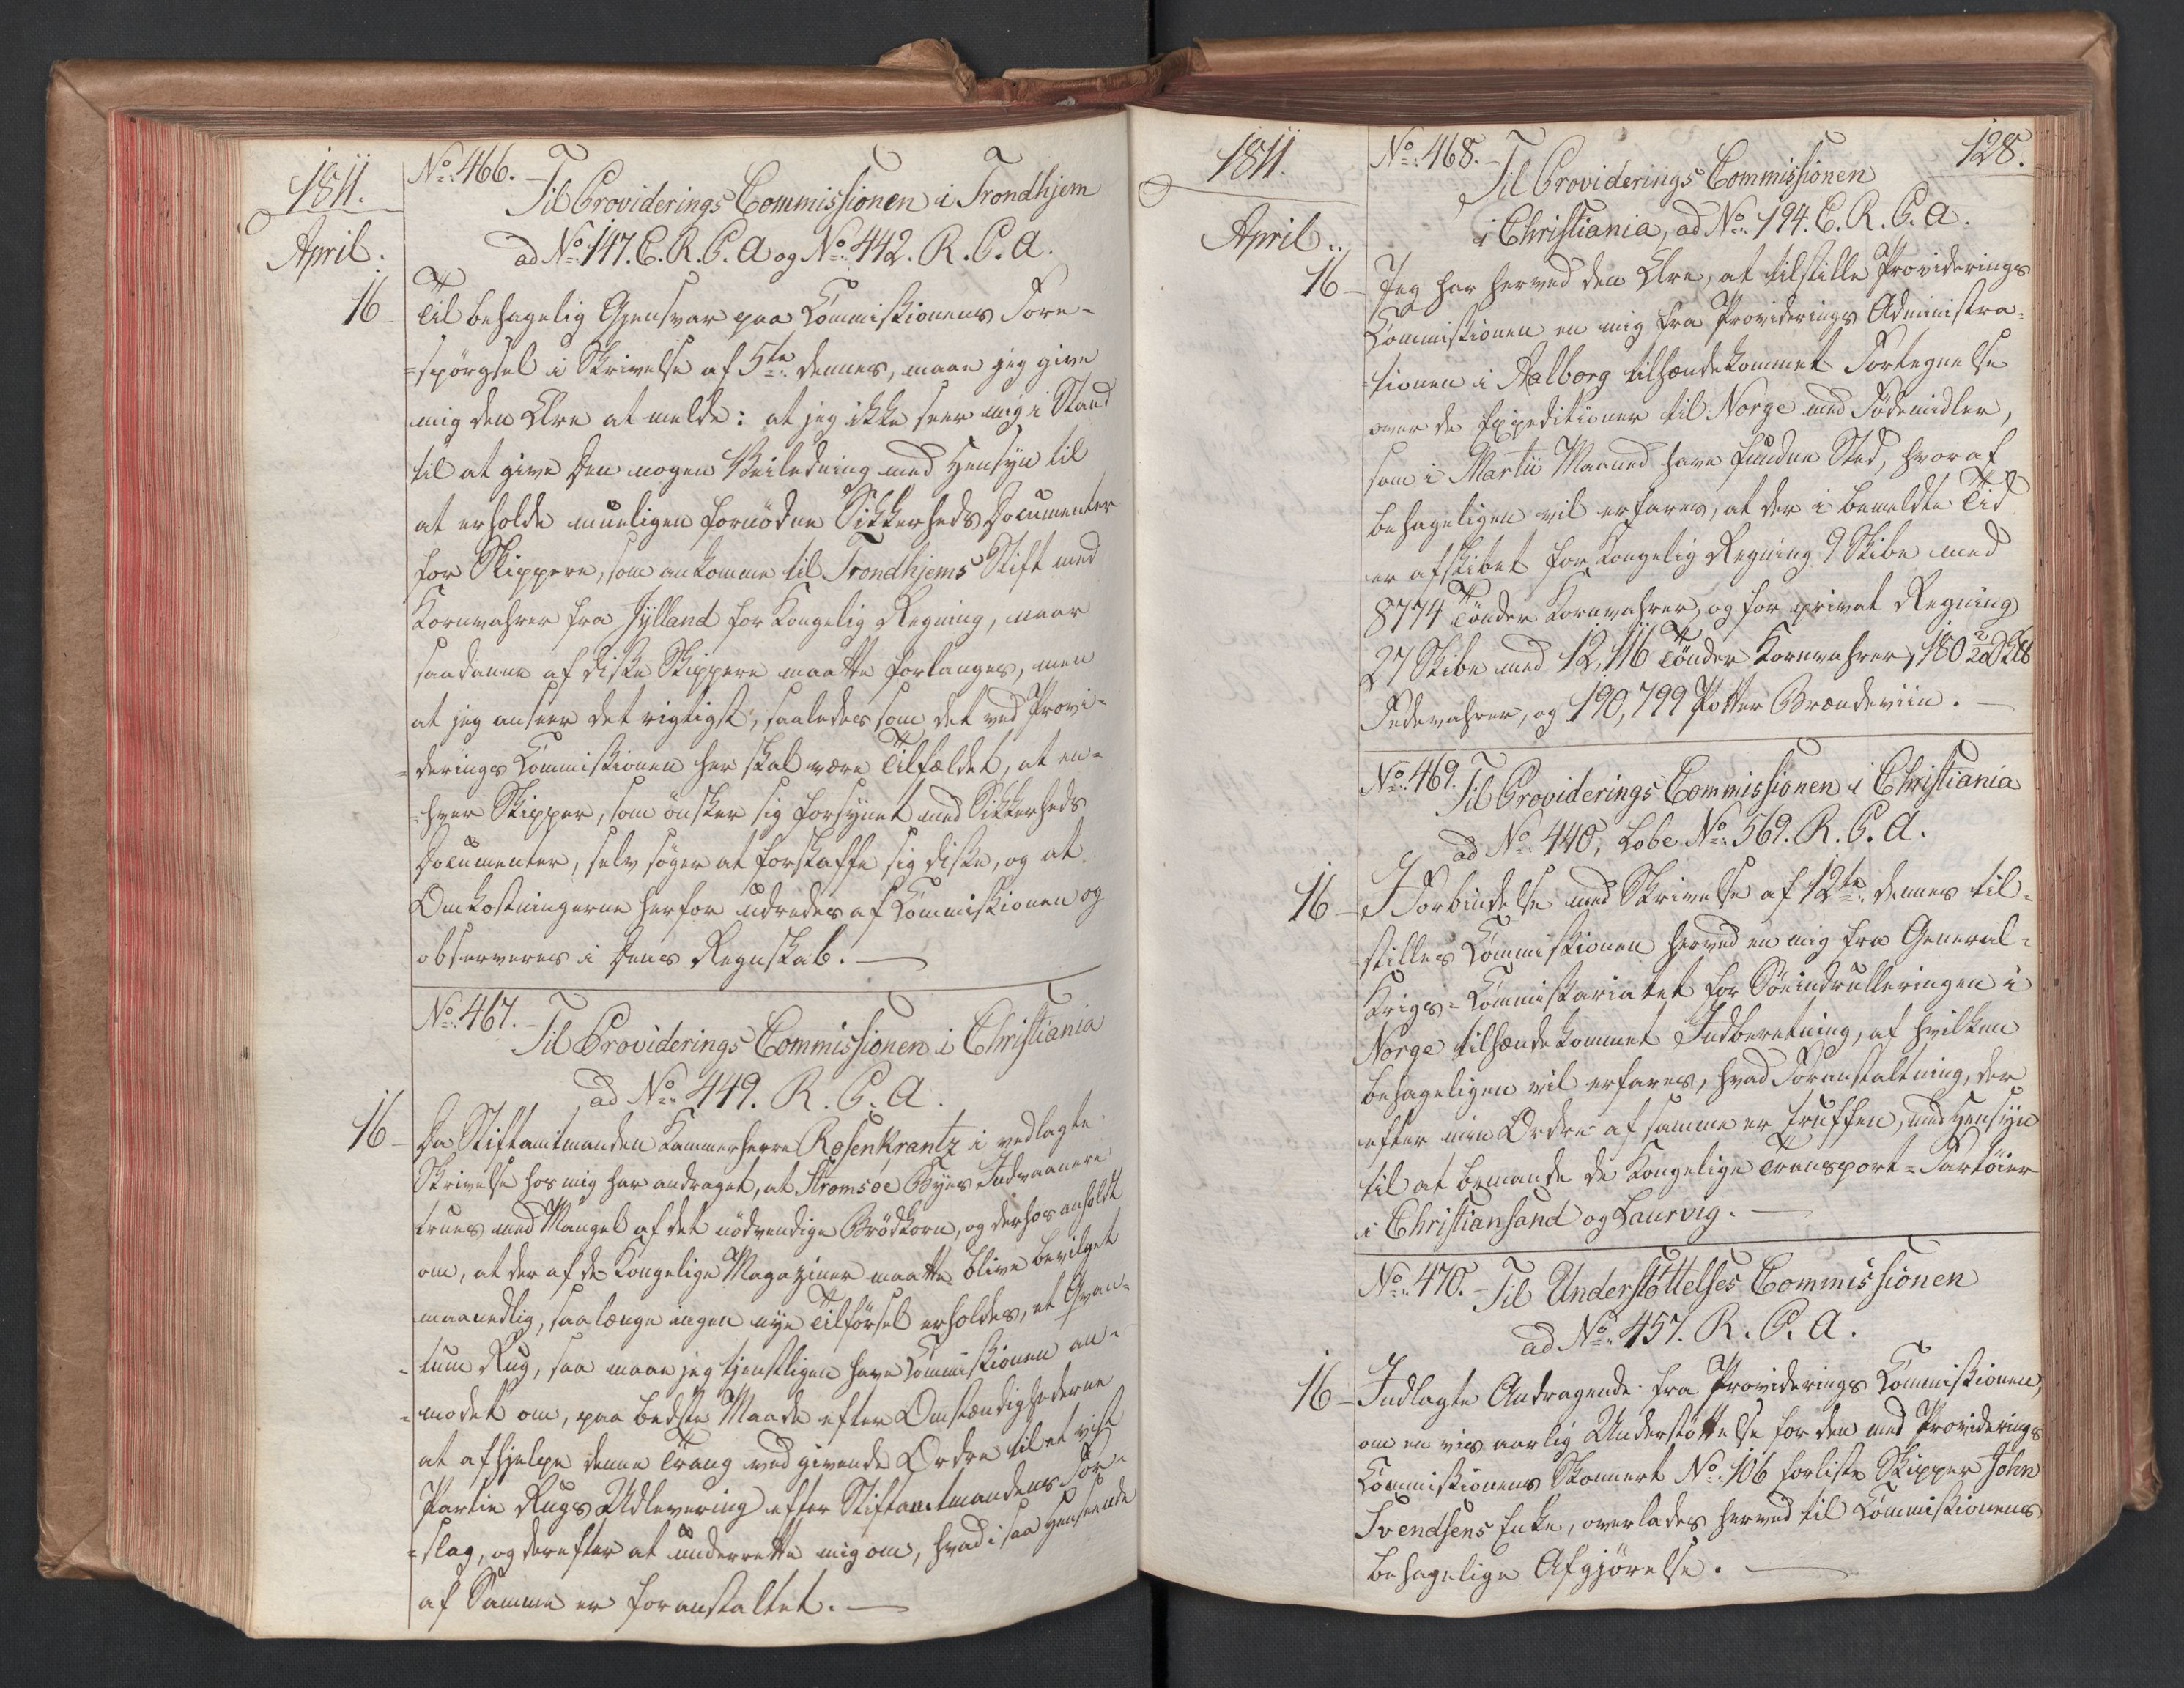 1811.
April.
No: 466.
Til Providerings Commissionen i Trondhjem
ad No: 147. C. R. P. A og No: 442. R. P. A.
16
Til behagelig Gjensvar paa Commissionens Fore-
=spörgsel i Skrivelse af 5te dennes, maae jeg give
mig den Ære at melde: at jeg ikke seer mig i Stand
til at give Den nogen Veiledning med Hensyn til
at erholde mueligen fornödne Sikkerheds Documenter
for Skippere, som ankomme til Trondhjems Stift med
Kornvahrer fra Jylland for Kongelig Regning, naar
saadanne af disse Skippere maatte forlanges, men
at jeg anseer det rigtigst, saaledes som det ved Provi-
=derings Commissionen her skal være Tilfældet, at en-
=hver Skipper, som önsker sig forsynet med Sikkerheds
Documenter, selv söger at forskaffe sig disse, og at
Omkostningerne herfor udredes af Commissionen og
observeres i Dens Regnskab.
No: 467.
Til Providerings Commissionen i Christiania
ad No: 449. R. P. A.
16
Da Stiftamtmanden Kammerherre Rosenkrantz i vedlagte
Skrivelse hos mig har andraget, at Stromsoe Byes Indvaanere
trues med Mangel af det nödvendige Brödkorn, og derhos anholdt
om, at der af de Kongelige Magaziner maatte blive bevilget
maanedlig, saalænge ingen nye Tilförsel erholdes, et Qvan-
=tum Rug, saa maae jeg tjenstligen have Commissionen an-
=modet om, paa bedste Maade efter Omstændighederne
at afhjelpe denne Trang ved givende Ordre til et vist
Partie Rugs Udlevering efter Stiftamtmandens For-
=slag, og derefter at underrette mig om, hvad i saa Henseende
af Samme er foranstaltet.
1811.
April.
128.
No: 468.
Til Providerings Commissionen
i Christiania, ad No: 194. C. R. P. A.
16
Jeg har herved den Ære, at tilstille Providerings
Commissionen en mig fra Providerings Administra-
=tionen i Aalborg tilhændekommet Fortegnelse
over de Expeditioner til Norge med Födemidler,
som i Martii Maaned have fundne Sted, hvoraf
behageligen vil erfares, at der i bemeldte Tid
er afskibet for Kongelig Regning 9 Skibe med
8774 Tönder Kornvahrer, og for privat Regning
27 Skibe med 12,116 Tönder Kornvahrer, 180
Fedevahrer, og 190,799 Potter Brændeviin.
No: 469.
Til Providerings Commissionen i Christiania
ad No: 440, Lobe No: 569. R. P. A.
16
I Forbindelse med Skrivelse af 12te dennes til-
=stilles Commissionen herved en mig fra General-
Krigs-Commissariatet for Söeindrulleringen i
Norge tilhændekommet Indberetning, af hvilken
behageligen vil erfares, hvad Foranstaltning, der
efter min Ordre af samme er truffen, med Hensyn
til at bemande de Kongelige Transport-Fartöier
i Christiansand og Laurvig.
No: 470.
Til Understöttelses Commissionen
ad No: 457. R. P. A.
16
Indlagte Andragende fra Providerings Commissionen,
om en vis aarlig Understöttelse for den med Providerings
Commissionens Skonnert No: 106 forliste Skipper John
Svendsens Enke, overlades herved til Commissionens
behagelige Afgjörelse.